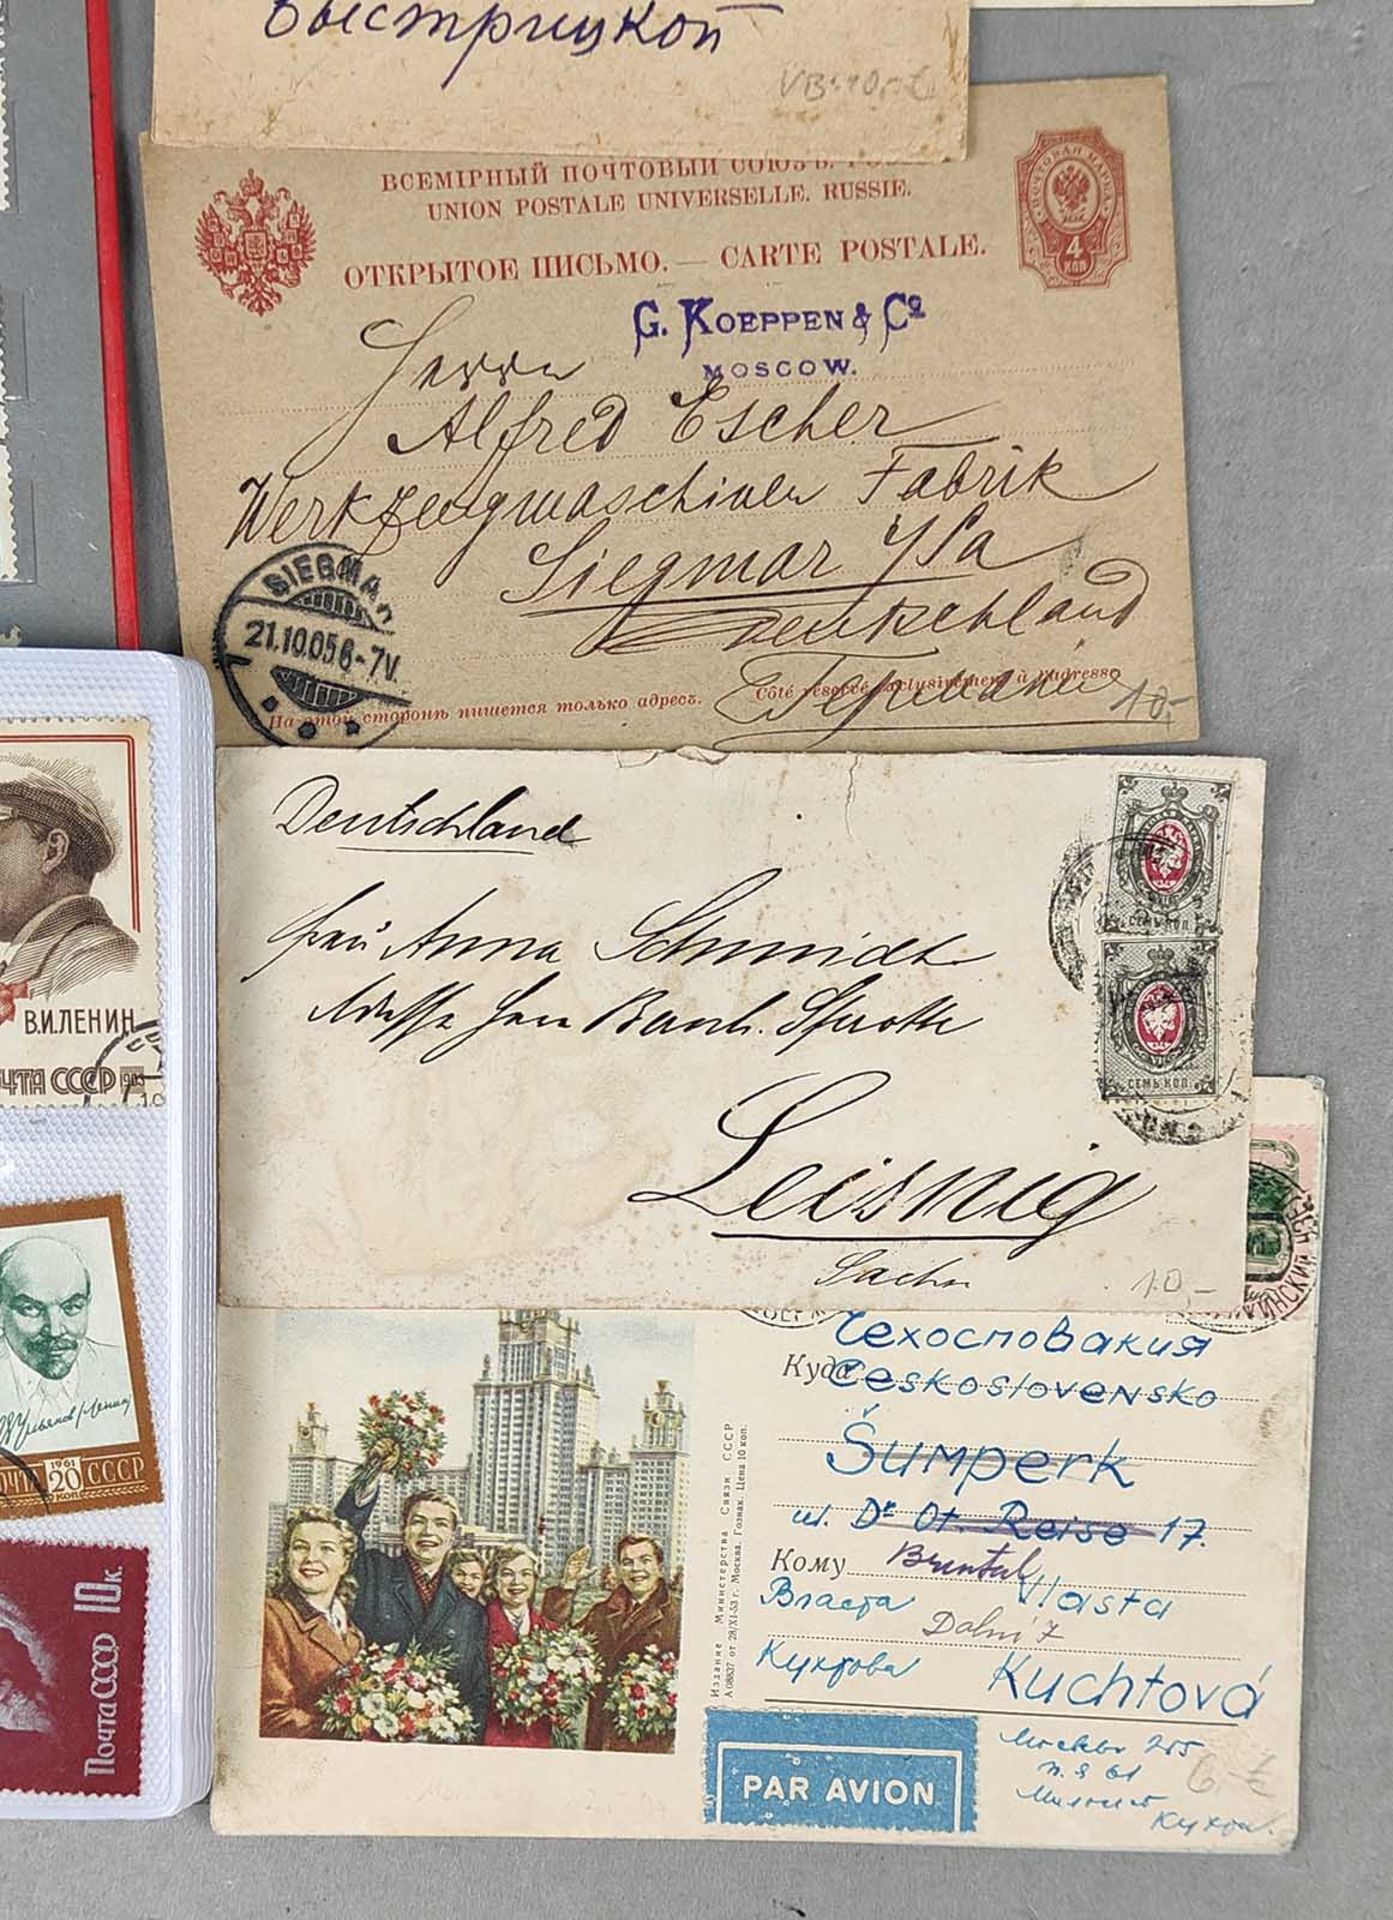 Быстрицкой
VB: 10,- €
ВСЕМІРНЫЙ ПОЧТОВЫЙ СОЮЗЪ.
UNION POSTALE UNIVERSELLE. RUSSIE.
ОТКРЫТОЕ ПИСЬМО. — CARTE POSTALE.
ПОЧТОВАЯ МАРКА
4
КОП
G. KOEPPEN & Cº
MOSCOW.
Herrn
Alfred Escher
Werkzeugmaschinen Fabrik
Siegmar i/Sa
Deutschland
SIEGMAR
21.10.05 6-7V.
На этой сторонѣ пишется только адресъ.
Côté réservé exclusivement à l'adresse
Германия
10,-
Deutschland
Frau Anna Schmidt
Adresse Herrn Sprotte
Leisnig
Sachsen
10,-
СЕМЬ КОП.
СЕМЬ КОП.
В.И.ЛЕНИН
ПОЧТА СССР 1963
ПОЧТА 1961 20 КОП СССР
Почта СССР 10 к.
Чехословакия
Куда
Československo
Šumperk
ul. Dr Ot. Reise 17.
Кому
Bruntál
Власта
Vlasta
Dolní 7
Кухтова
Kuchtová
Издание Министерства Связи СССР
А 08837 от 28/XI-53 г. Москва. Гознак. Цена 10 коп.
PAR AVION
Москва